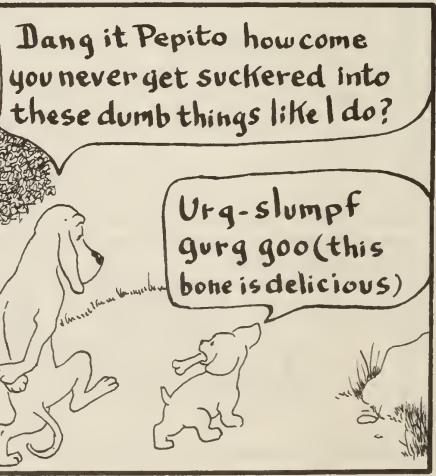 Dang it Pepito how come
you never get suckered into
these dumb things like I do?
Urg-slumpf
gurg goo (this
bone is delicious)